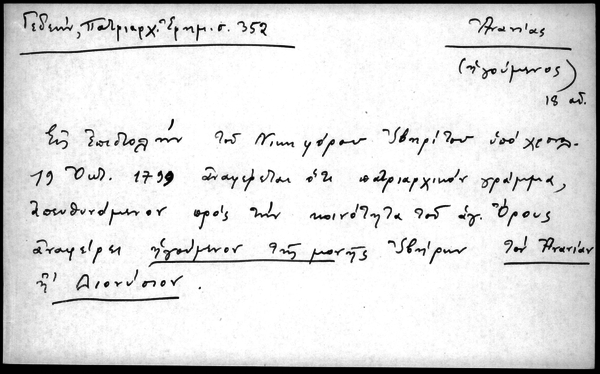 Γεδεών, Πατριαρχ. Ἐφημ. σ. 352
Ἀνανίας
(ἡγούμενος)
18 αἰ.
Εἰς ἐπιστολήν τοῦ Νικηφόρου Ἰβηρίτου ὑπό χρονολ.
19 Ὀκτ. 1799 ἀναφέρεται ὅτι πατριαρχικόν γράμμα,
ἀπευθυνόμενον πρός τήν κοινότητα τοῦ ἁγ. Ὄρους
ἀναφέρει ἡγούμενον τῆς μονῆς Ἰβήρων τόν Ἀνανίαν
ἤ Διονύσιον.